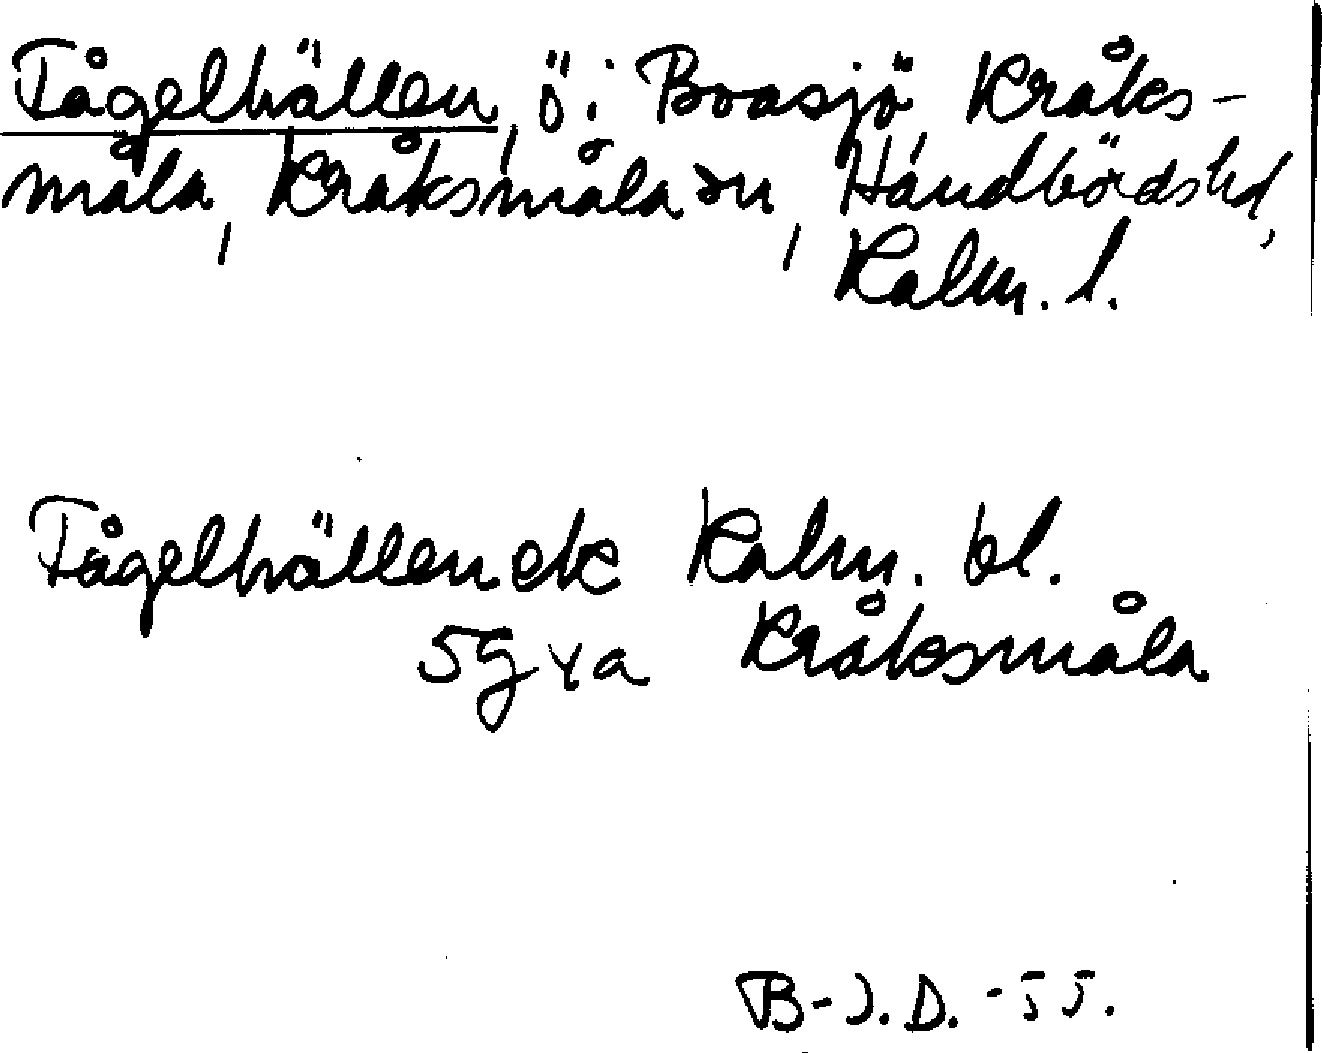 Tågelhällen, ö i Boasjö, Kråks-
måla, Kråksmåla sn, Handbördshd,
Kalm. l.
Tågelhällen ek Kalm. bl.
5g xa Kråksmåla
B-J.D. -55.